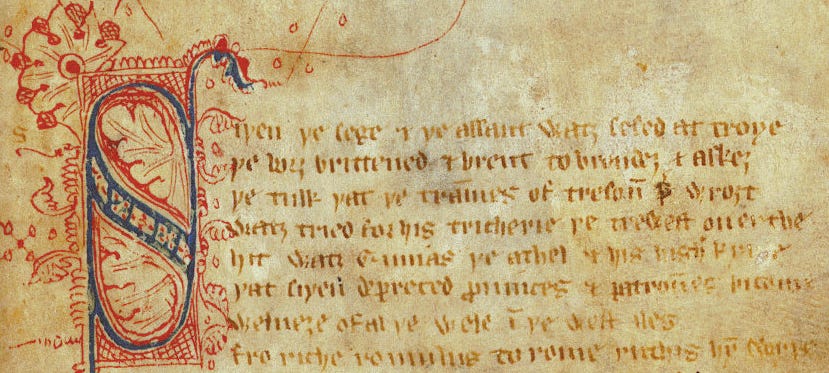 Siþen þe sege & þe assaut watz sesed at troye
þe borȝ brittened & brent to brondez & askez
þe tulk þat þe tram̄es of tresoun̄ þ̕ wroȝt
watz tried for his tricherie þe trewest on erthe
hit watz Ennias þe athel & his highe kynde
þat siþen depreced ꝑuinces & patroūes bicome
welneȝe of al þe wele ī þe west iles
fro riche romulus to rome ricchis hȳ swyþe